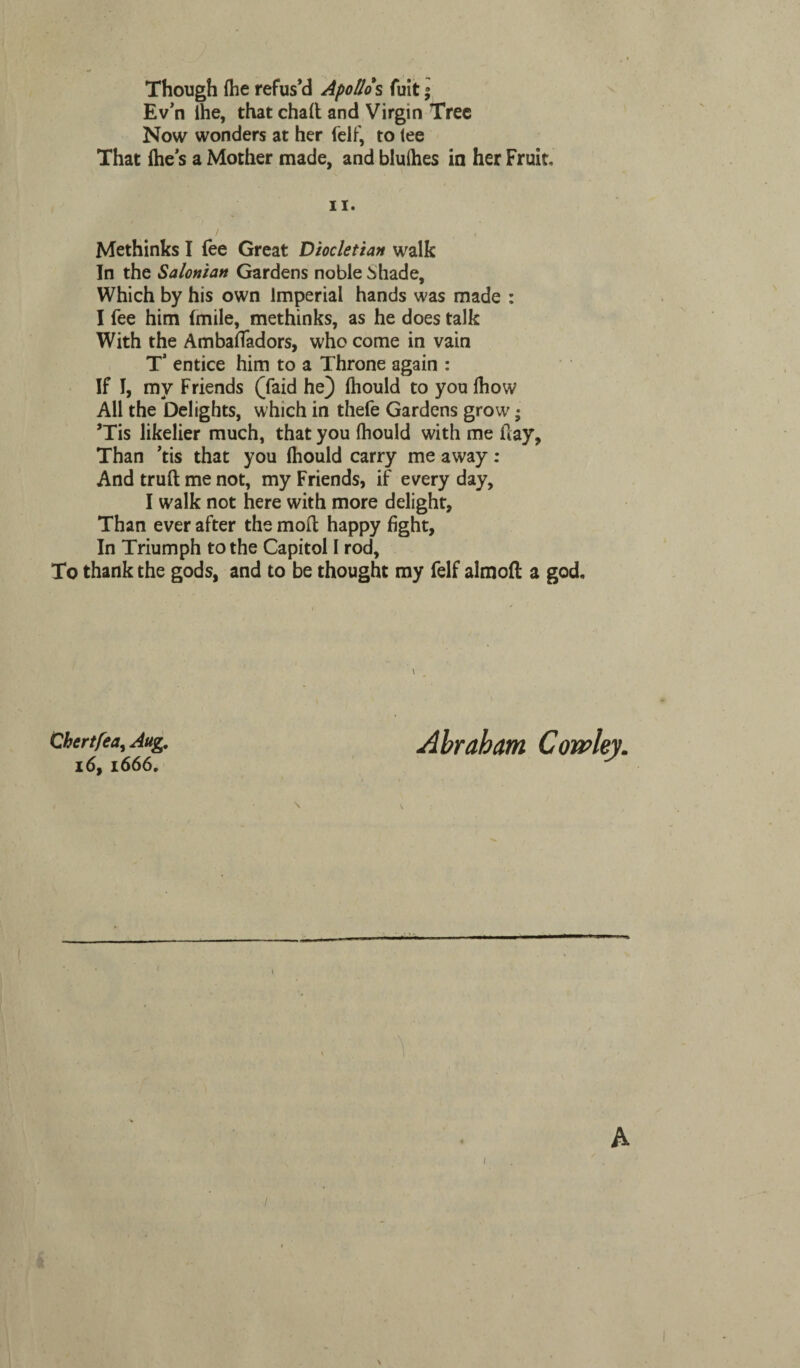 Though ſhe refus'd Apollo's ſuit;
Ev'n ſhe, that chaſt and Virgin Tree
Now wonders at her ſelf, to ſee
That ſhe's a Mother made, and bluſhes in her Fruit.
11.
Methinks I ſee Great Diocletian walk
In the Salonian Gardens noble Shade,
Which by his own Imperial hands was made :
I ſee him ſmile, methinks, as he does talk
With the Ambaſſadors, who come in vain
T' entice him to a Throne again :
If I, my Friends (ſaid he) ſhould to you ſhow
All the Delights, which in theſe Gardens grow;
'Tis likelier much, that you ſhould with me ſtay,
Than 'tis that you ſhould carry me away :
And truſt me not, my Friends, if every day,
I walk not here with more delight,
Than ever after the moſt happy fight,
In Triumph to the Capitol I rod,
To thank the gods, and to be thought my ſelf almoſt a god.
Chertſea, Aug.
16, 1666.
Abraham Cowley.
A